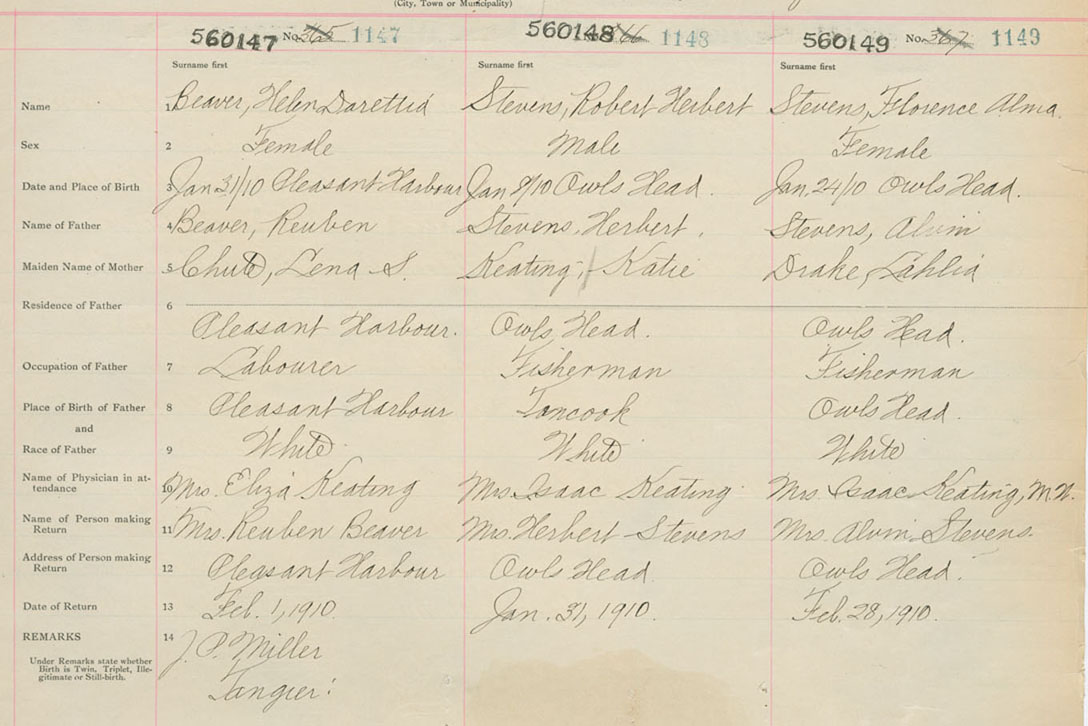 (City, Town or Municipality)
560147 No. 365 1147 560148 366 1148 560149 No. 367 1149
Surname first Surname first Surname first
Name 1 Beaver, Helen Darettia Stevens, Robert Herbert Stevens, Florence Alma.
Sex 2 Female Male Female
Date and Place of Birth 3 Jan 31/10 Pleasant Harbour Jan 9/10 Owls Head. Jan. 24/10 Owls Head.
Name of Father 4 Beaver, Reuben Stevens, Herbert. Stevens, Alvin
Maiden Name of Mother 5 Chute, Lena S. Keating, Katie Drake, Lahlia
Residence of Father 6
Pleasant Harbour. Owls Head. Owls Head.
Occupation of Father 7 Labourer Fisherman Fisherman
Place of Birth of Father 8 Pleasant Harbour Tancook Owls Head.
and
Race of Father 9 White White White
Name of Physician in at-
tendance 10 Mrs. Eliza Keating Mrs. Isaac Keating Mrs. Isaac Keating, M.N.
Name of Person making
Return 11 Mrs. Reuben Beaver Mrs. Herbert Stevens Mrs. Alvin Stevens.
Address of Person making
Return 12 Pleasant Harbour Owls Head. Owls Head.
Date of Return 13 Feb. 1, 1910. Jan. 31, 1910. Feb. 28, 1910.
REMARKS 14 J. P. Miller
Under Remarks state whether
Birth is Twin, Triplet, Ille-
gitimate or Still-birth.
Tangier.